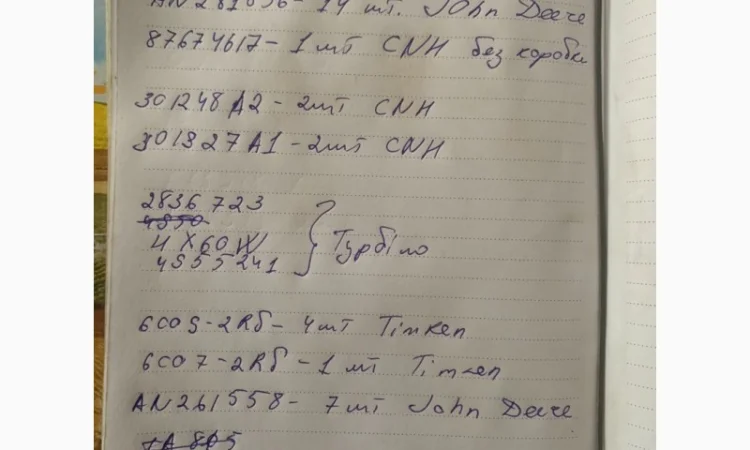 AN 281656 - 14 шт. John Deere
87674617 - 1 шт CNH без коробки
301248 A2 - 2шт CNH
301327 A1 - 2шт CNH
2836 723
4550
HX60W
4955241
Турбіно
6009-2RS - 4шт Timken
6007-2RS - 1 шт Timken
AN261558 - 7шт John Deere